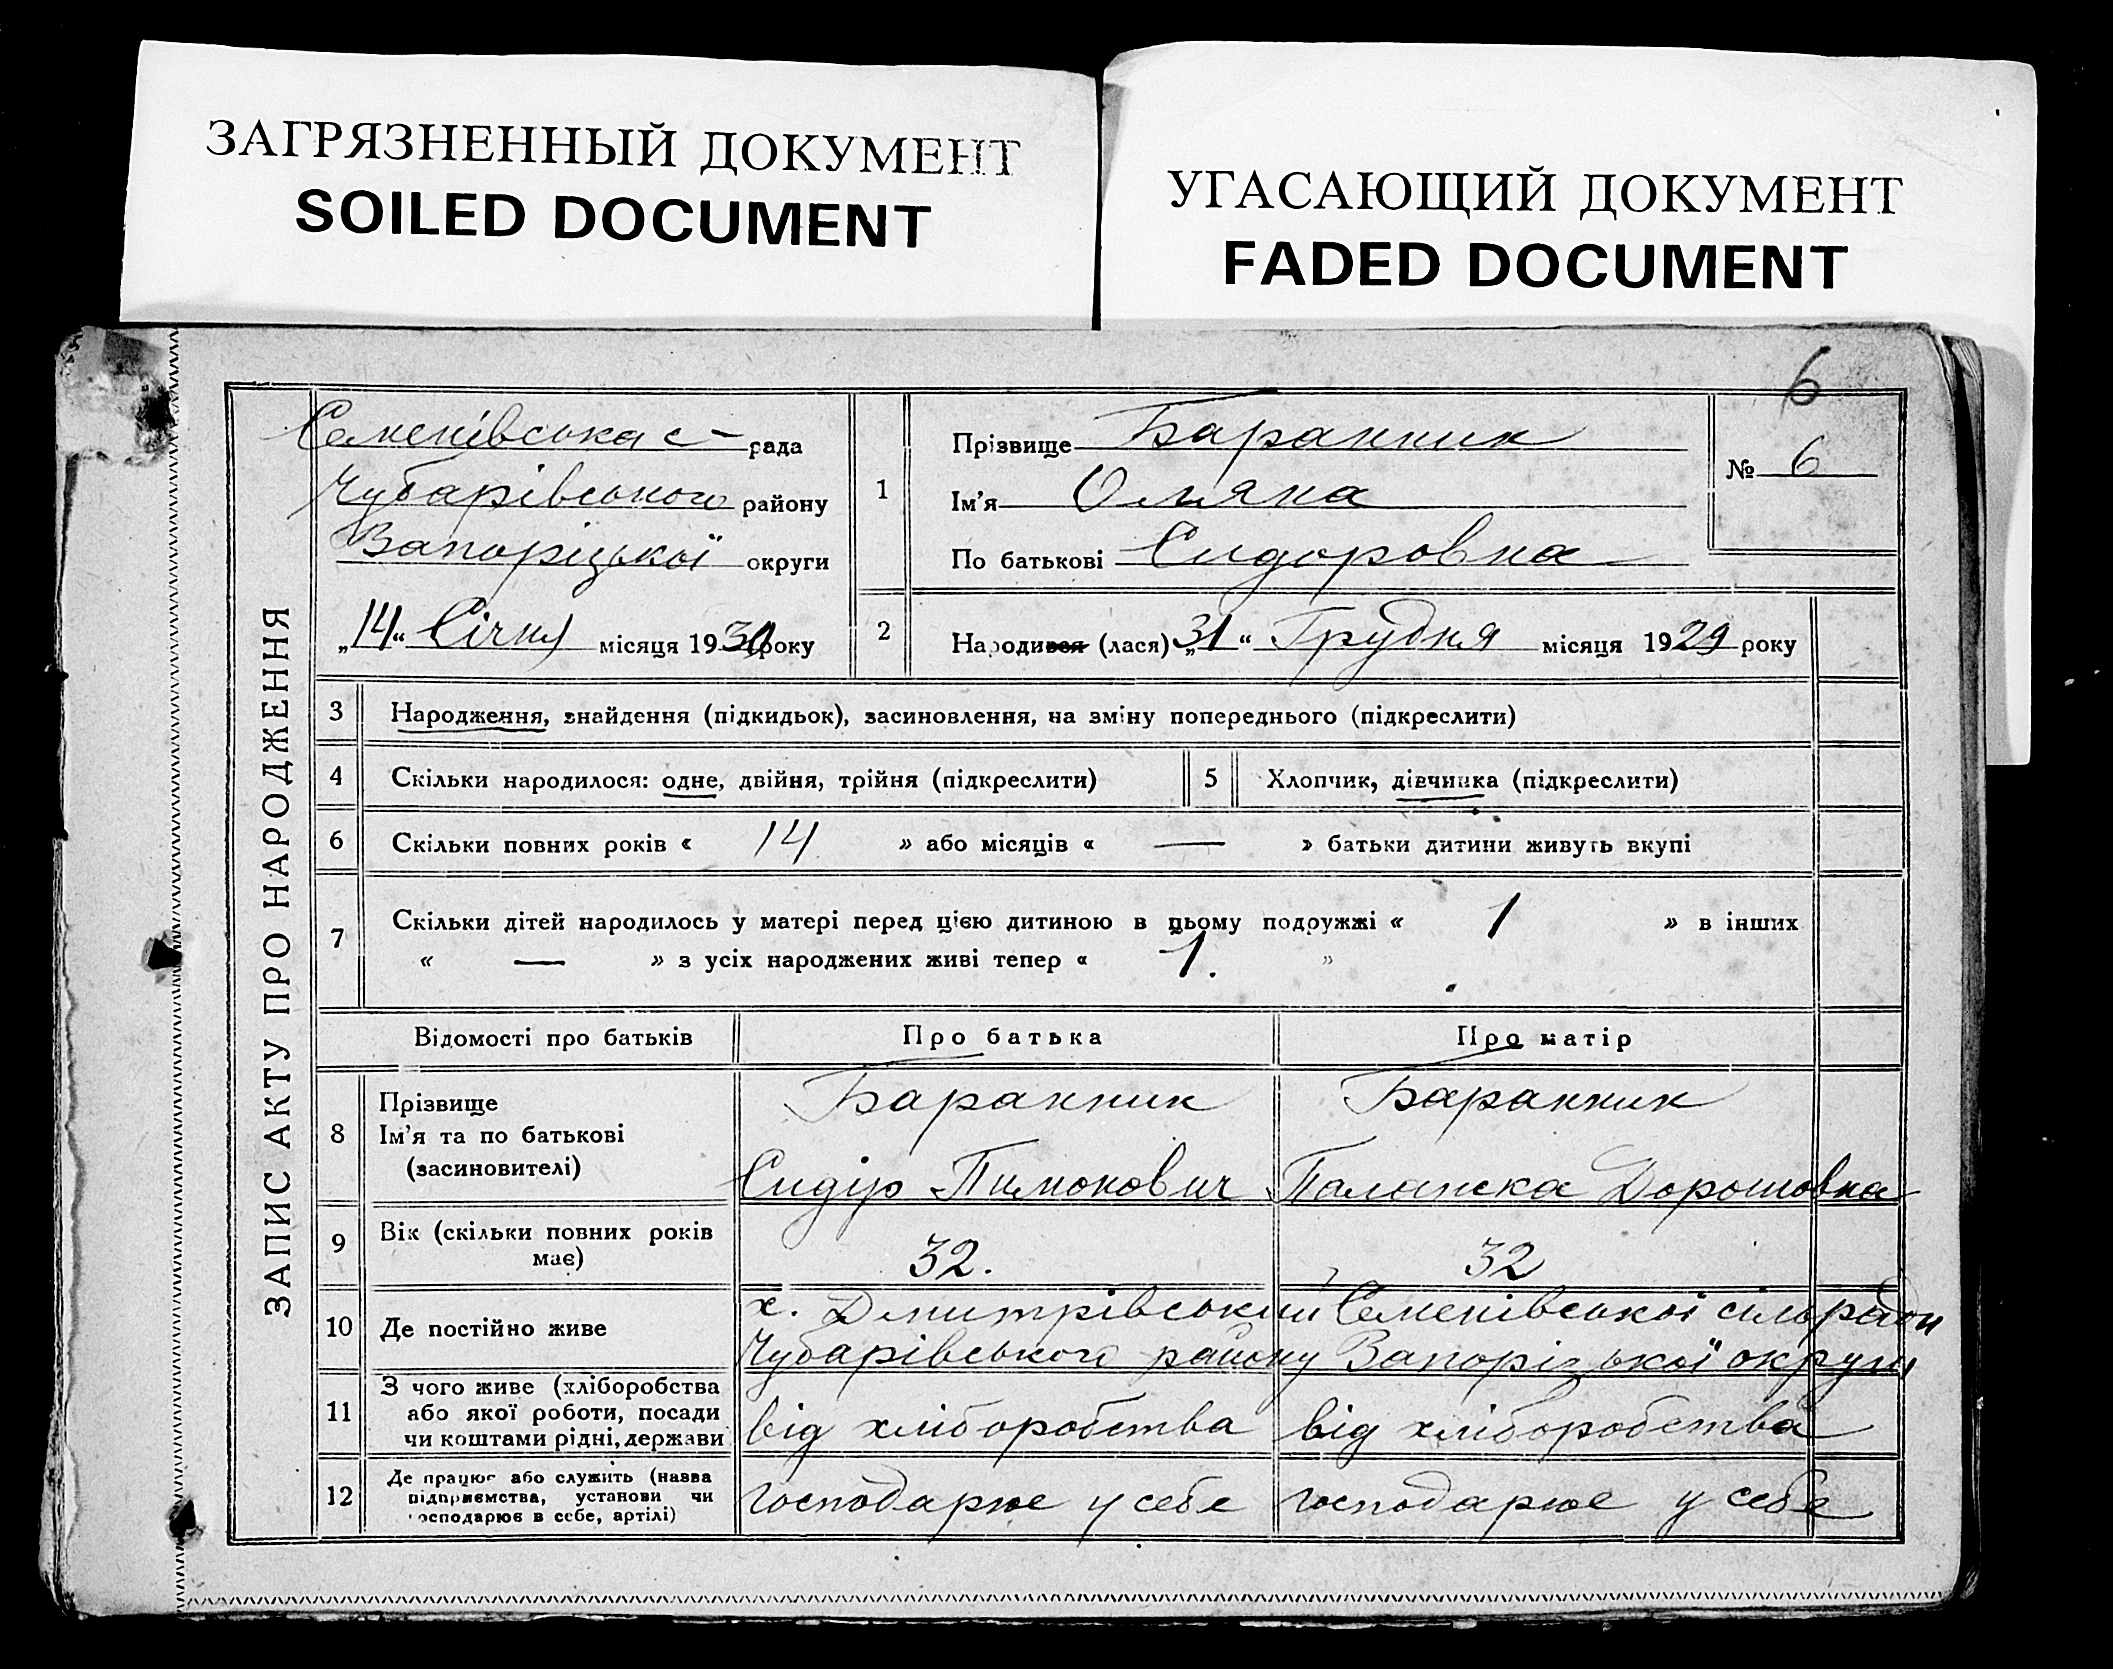 ЗАГРЯЗНЕННЫЙ ДОКУМЕНТ
SOILED DOCUMENT
УГАСАЮЩИЙ ДОКУМЕНТ
FADED DOCUMENT
6
ЗАПИС АКТУ ПРО НАРОДЖЕННЯ
Семенівська с – рада
Чубарівського району
Запоріцької округи
„14“ Січня місяця 1930 року
1
Прізвище Баранник
Ім'я Оляна
По батькові Сидоровна
№ 6
2 Народився (лася) „31“ Грудня місяця 1929 року
3 Народження, знайдення (підкидьок), засиновлення, на зміну попереднього (підкреслити)
4 Скільки народилося: одне, двійня, трійня (підкреслити) 5 Хлопчик, дівчинка (підкреслити)
6 Скільки повних років « 14 » або місяців « — » батьки дитини живуть вкупі
7 Скільки дітей народилось у матері перед цією дитиною в цьому подружжі « 1 » в інших
« — » з усіх народжених живі тепер « 1. »
Відомості про батьків Про батька Про матір
8 Прізвище Баранник Баранник
Ім'я та по батькові
(засиновителі) Сидір Пимонович Палажка Дорошовна
9 Вік (скільки повних років
має) 32. 32
10 Де постійно живе х. Дмитрівський Семенівської сільради
Чубарівського району Запоріцької округи
11 З чого живе (хліборобства
або якої роботи, посади
чи коштами рідні, держави від хліборобства від хліборобства
12 Де працює або служить (назва
підприємства, установи чи
господарює в себе, артілі) господарює у себе господарює у себе